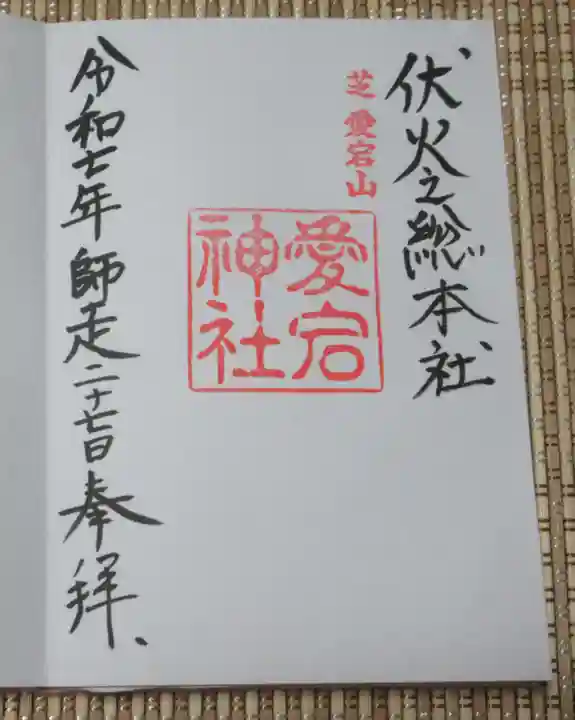 伏火之総本社
芝愛宕山
愛宕
神社
令和七年師走二十七日奉拝、